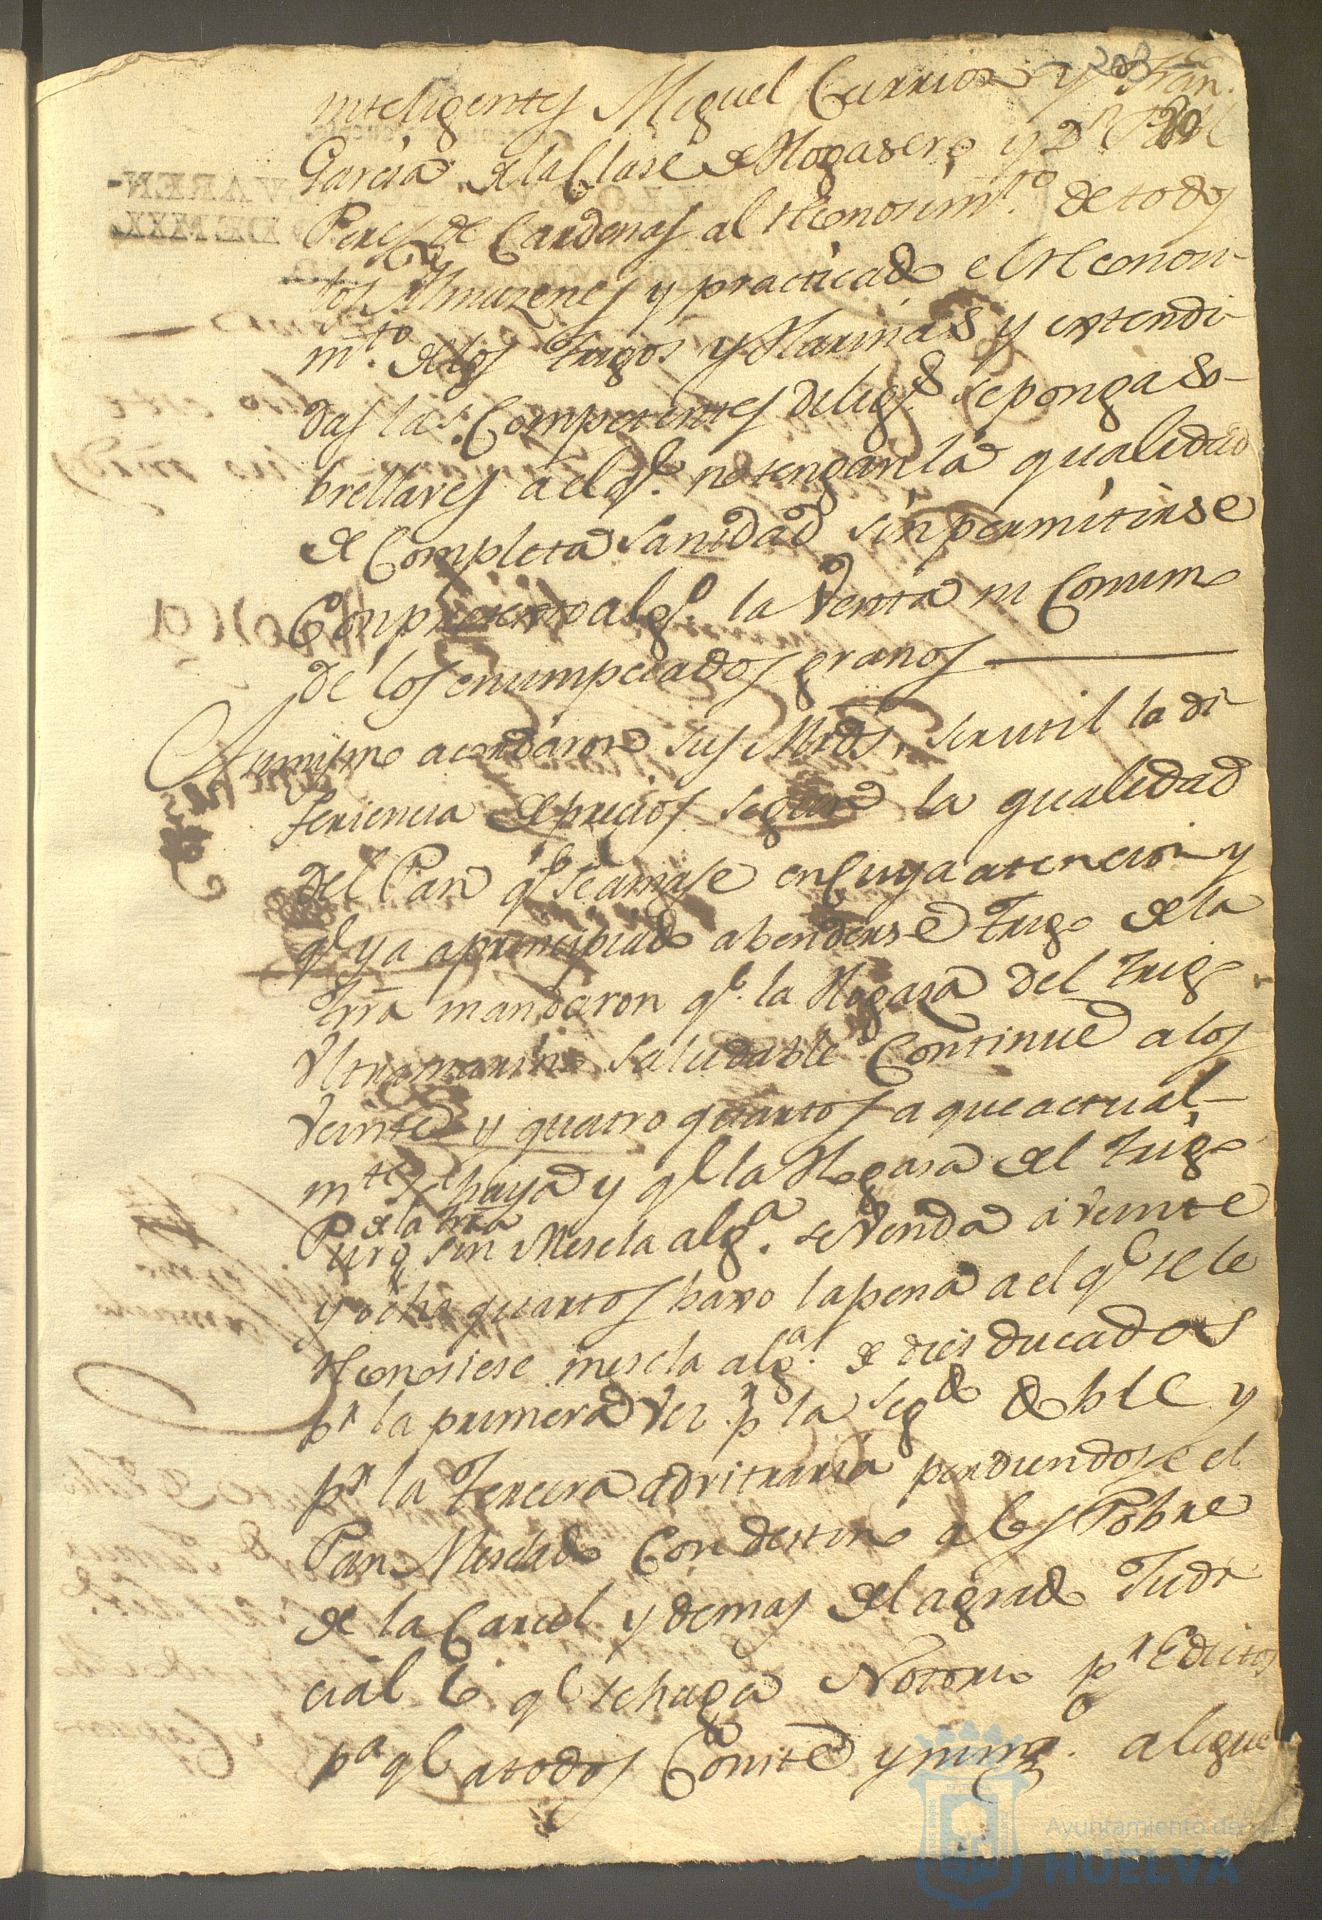 inteligentes Miguel Carrion y Fran.co
Garcia de la Clase de Hogasero y Dn
Peres de Cardenas al reconosim.to de todos
los Almazenes y practicado el reconosi-
m.to de los trigos y Harinas y extendi-
das las Competentes delig.s se ponga so-
brellaves a el q.e no tengan la qualidad
de Completa sanidad sin permitirse
Con pretexto alg.o la Venta ni Consumo
de los enumpeciados granos
Asimismo acordaron sus Mrds. ser util la di-
feriencia de precios segun la qualidad
del Pan q.e se amase en Cuya atencion y
q.e ya a prencipiado a benderse trigo de la
trra mandaron q.e la Hogasa del trigo
Ultramarino saludable Continue a los
Veinte y quatro quartos a que actual-
mte. se haya y q.e la Hogasa del trigo
de la trra
Puro sin Mescla alg.a se Venda a Veinte
y ocho quartos baxo la pena a el q.e se le
reconosiese mescla alg.a de dies ducados
pr la primera Vez pr la seg.da doble y
pr la tercera advitraria perdiendose el
Pan Mesclado Con destino a los Pobre
de la Carcel y demas del agrado Judi
cial lo q.e se haga Notorio pr Edictos
pa q.e a todos Conste y ning.o alegue
Ayuntamiento de
HUELVA